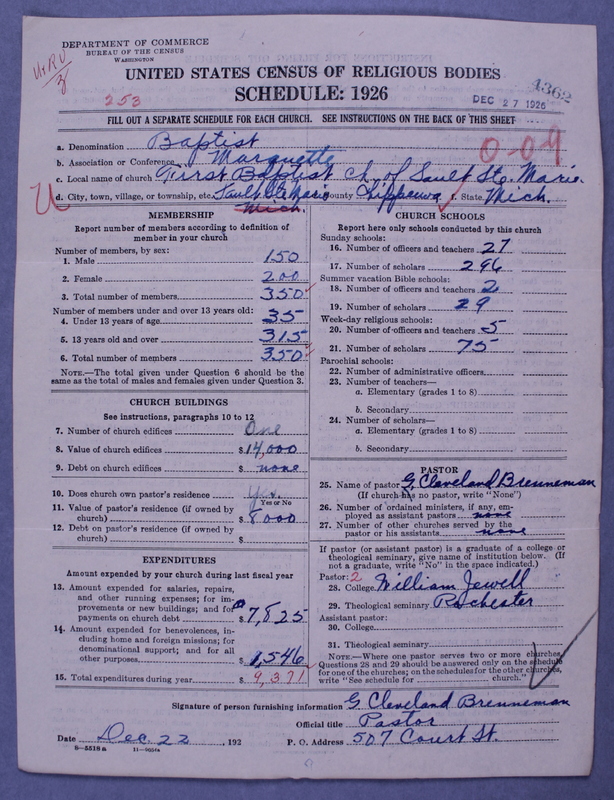 DEPARTMENT OF COMMERCE
BUREAU OF THE CENSUS
WASHINGTON
253
UNITED STATES CENSUS OF RELIGIOUS BODIES
SCHEDULE: 1926
DEC 27 1926
4362
FILL OUT A SEPARATE SCHEDULE FOR EACH CHURCH. SEE INSTRUCTIONS ON THE BACK OF THIS SHEET
0-0-9
a. Denomination Baptist
b. Association or Conference Marquette
c. Local name of church First Baptist Ch. of Sault Ste. Marie.
d. City, town, village, or township, etc. Sault Ste Marie county Chippewa f. State Mich.
Mich.
U
MEMBERSHIP
Report number of members according to definition of
member in your church
Number of members, by sex:
1. Male 150
2. Female 200
3. Total number of members 350
Number of members under and over 13 years old:
4. Under 13 years of age 35
5. 13 years old and over 315
6. Total number of members 350
NOTE.—The total given under Question 6 should be the
same as the total of males and females given under Question 3.
CHURCH BUILDINGS
See instructions, paragraphs 10 to 12
7. Number of church edifices One
8. Value of church edifices $14,000
9. Debt on church edifices $ none
10. Does church own pastor's residence Yes.
Yes or No
11. Value of pastor's residence (if owned by
church) $ 8000
12. Debt on pastor's residence (if owned by
church) $
EXPENDITURES
Amount expended by your church during last fiscal year
13. Amount expended for salaries, repairs,
and other running expenses; for im-
provements or new buildings; and for
payments on church debt $7,825
14. Amount expended for benevolences, in-
cluding home and foreign missions; for
denominational support; and for all
other purposes $1,546
15. Total expenditures during year $9,371
CHURCH SCHOOLS
Report here only schools conducted by this church
Sunday schools:
16. Number of officers and teachers 27
17. Number of scholars 296
Summer vacation Bible schools:
18. Number of officers and teachers 2
19. Number of scholars 29
Week-day religious schools:
20. Number of officers and teachers 5
21. Number of scholars 75
Parochial schools:
22. Number of administrative officers
23. Number of teachers—
a. Elementary (grades 1 to 8)
b. Secondary
24. Number of scholars—
a. Elementary (grades 1 to 8)
b. Secondary
PASTOR
25. Name of pastor G. Cleveland Brenneman
(If church has no pastor, write "None")
26. Number of ordained ministers, if any, em-
ployed as assistant pastors none
27. Number of other churches served by the
pastor or his assistants none
If pastor (or assistant pastor) is a graduate of a college or
theological seminary, give name of institution below. (If
not a graduate, write "No" in the space indicated.)
Pastor: 2
28. College William Jewell
29. Theological seminary Rochester
Assistant pastor:
30. College
31. Theological seminary
NOTE.—Where one pastor serves two or more churches,
Questions 28 and 29 should be answered only on the schedule
for one of the churches; on the schedules for the other churches,
write "See schedule for church."
Signature of person furnishing information G. Cleveland Brenneman
Official title Pastor
Date Dec. 22, 192 P. O. Address 507 Court St.
8—5518a 11—9054a